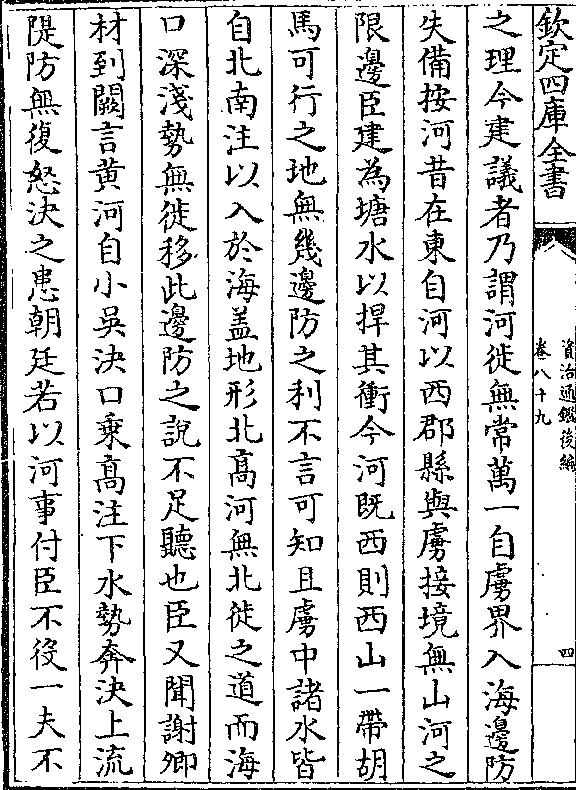 欽定四庫全書
資治通鑑後編
卷八十九
四
之理今建議者乃謂河徙無常萬一自虜界入海邊防
失備按河昔在東自河以西郡縣與虜接境無山河之
限邊臣建為塘水以捍其衝今河既西則西山一帶胡
馬可行之地無幾邊防之利不言可知且虜中諸水皆
自北南注以入於海盖地形北髙河無北徙之道而海
口深淺勢無徙移此邊防之說不足聽也臣又聞謝卿
材到闕言黄河自小吳決口乗髙注下水勢奔決上流
隄防無復怒決之患朝廷若以河事付臣不役一夫不